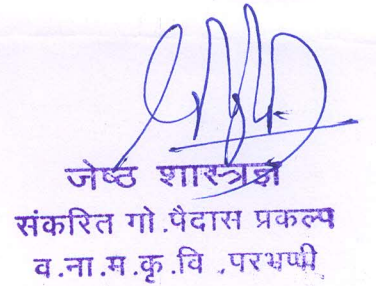 जेष्ठ शास्त्रज्ञ
संकरित गो.पैदास प्रकल्प
व.ना.म.कृ.वि .परभणी